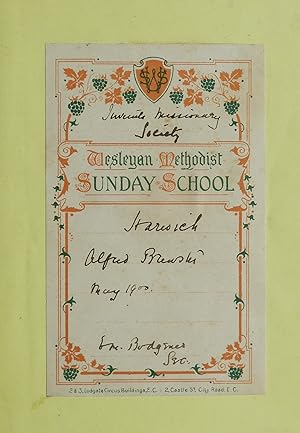 Juvenile Missionary
Society
Wesleyan Methodist
SUNDAY SCHOOL
Harwich
Alfred
May 1900.
Em. Bodgener
Sec.
2 & 3, Ludgate Circus Buildings, E.C. : 2, Castle St. City Road, E.C.